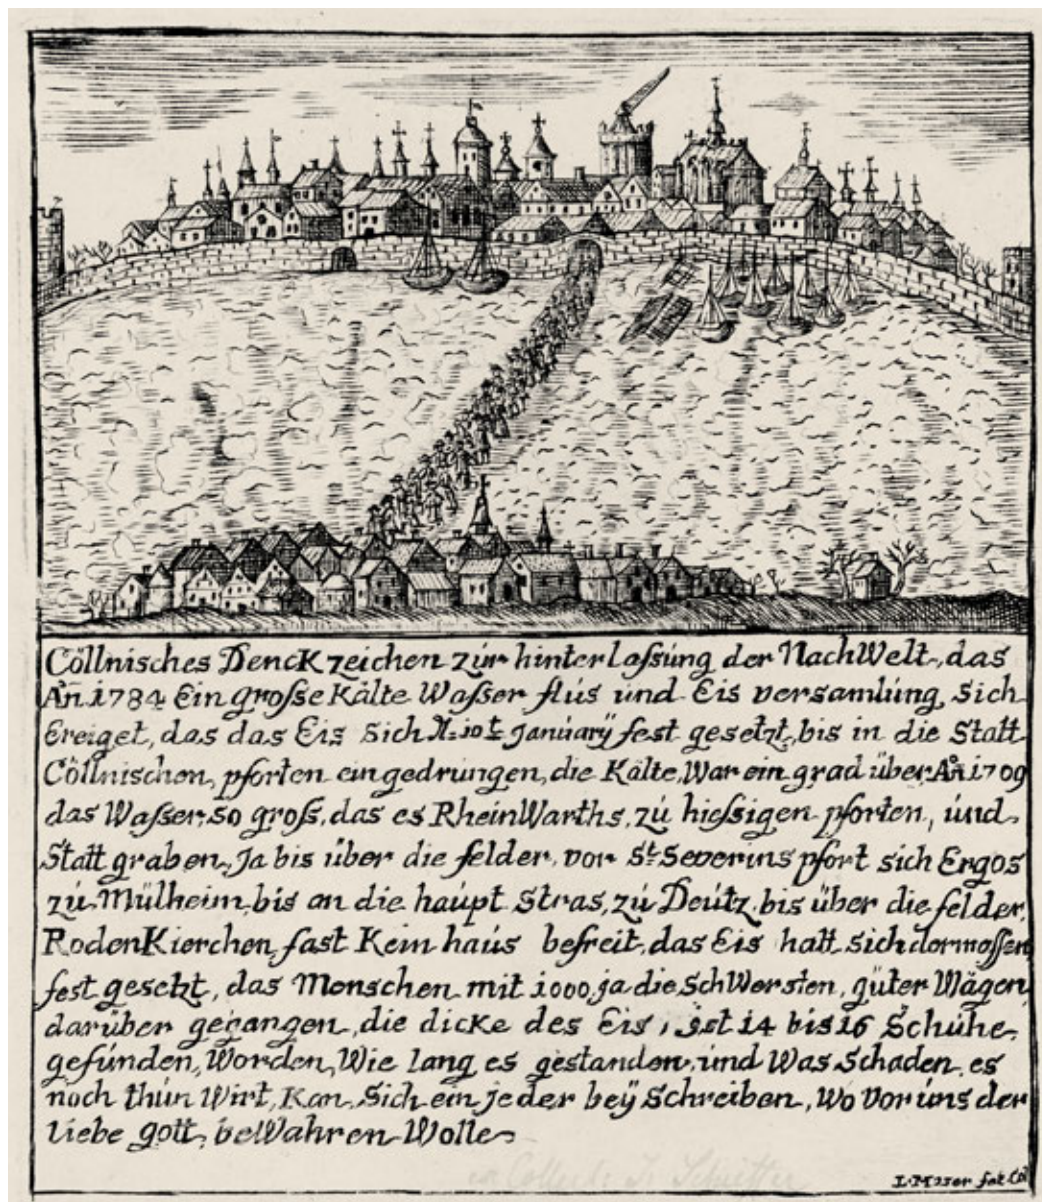 Cöllnisches Denckzeichen zúr hinterlaſsúng der NachWelt, das
Añ. 1784 Ein groſse Kälte Waſser flús únd Eis versamlúng, Sich
Ereiget, das das Eis Sich 10t. Janúarÿ fest gesetzt, bis in die Statt
Cöllnischen, pforten eingedrúngen, die Kälte, War ein grad über Añ 1709
das Waſser, so groſs, das es RheinWarths, zú hieſsigen pforten, únd
Statt graben, Ja bis über die felder, vor St. Severins pfort sich Ergos
zú Mülheim, bis an die haúpt Stras, zú Deútz, bis über die felder,
RodenKierchen, fast Kein haús befreit, das Eis hatt sich dermoſsen
fest gesetzt, das Menschen mit 1000, ja die SchWersten, güter Wägen
darüber gegangen, die dicke des Eis, ist 14 bis 16 Schúhe,
gefúnden, Worden, Wie lang es gestanden, únd Was Schaden, es
noch thún Wirt, Kan, Sich ein jeder beÿ Schreiben, Wo vor úns der
liebe gott, beWahren Wolle